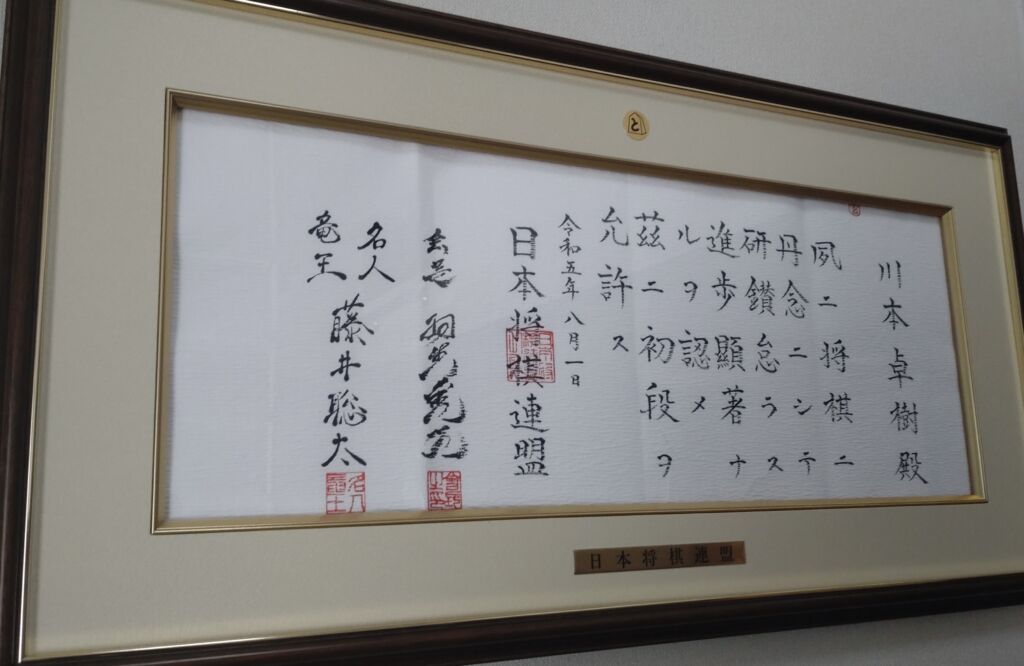 川本卓樹殿
夙ニ将棋ニ
丹念ニシテ
研鑚怠ラス
進歩顯著ナ
ルヲ認メ
茲ニ初段ヲ
允許ス
令和五年八月一日
日本将棋連盟
会長 羽生善治
名人
竜王 藤井聡太
と
日本将棋連盟